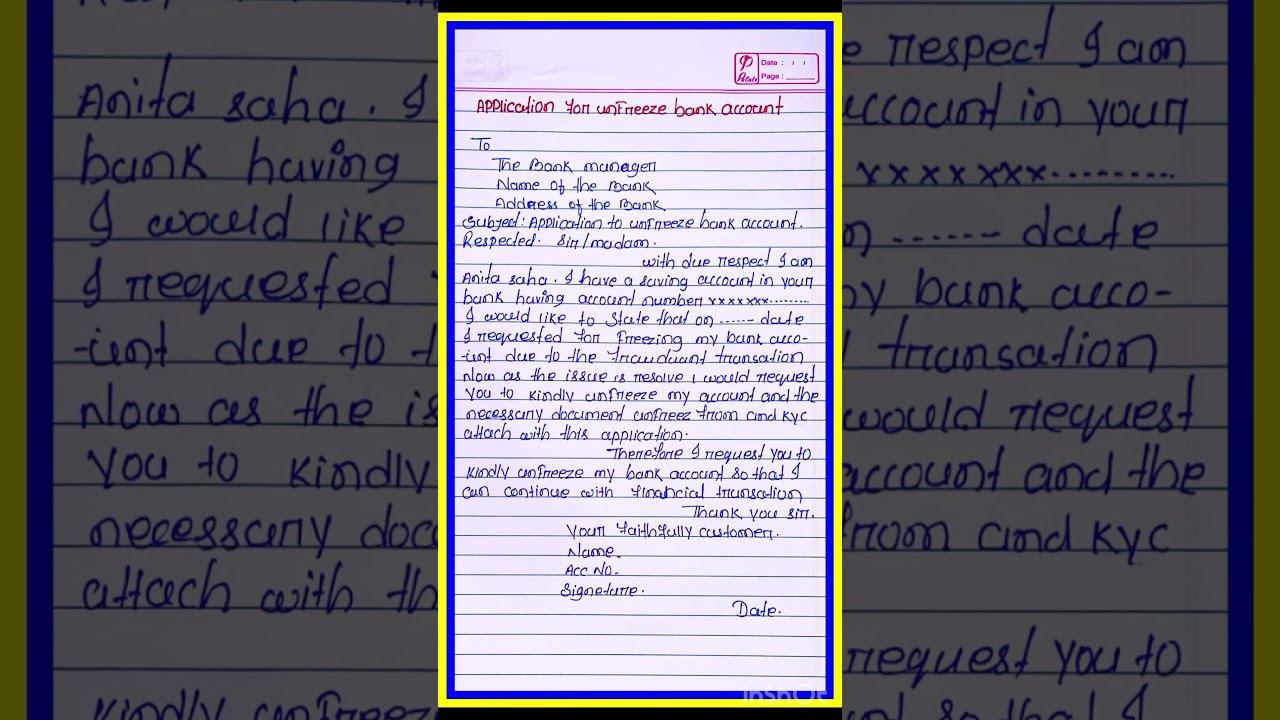 Date : / /
Page :
Application for unfreeze bank account
To
The Bank manager
Name of the Bank
Address of the Bank
Subject: Application to unfreeze bank account.
Respected. Sir/madam.
with due respect I am
Anita saha. I have a saving account in your
bank having account number xxxxxxx.........
I would like to State that on ...... date
I requested for freezing my bank acco-
-unt due to the frauduant transation
Now as the issue is resolve I would request
you to kindly unfreeze my account and the
necessary document unfreez from and KYC
attach with this application.
Therefore I request you to
kindly unfreeze my bank account so that I
can continue with financial transation
Thank you sir.
Your faithfully customer.
Name.
Acc No.
Signeture.
Date.
InShOt